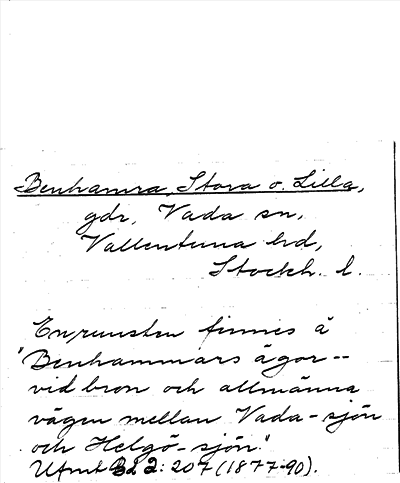 Benhamra, Stora o. Lilla,
gdr, Vada sn,
Vallentuna hd,
Stockh. l.
En runsten finnes å
"Benhammars ägor--
vid bron och allmänna
vägen mellan Vada-sjön
och Helgö-sjön."
Ufmt Bd 2: 207 (1877-90).